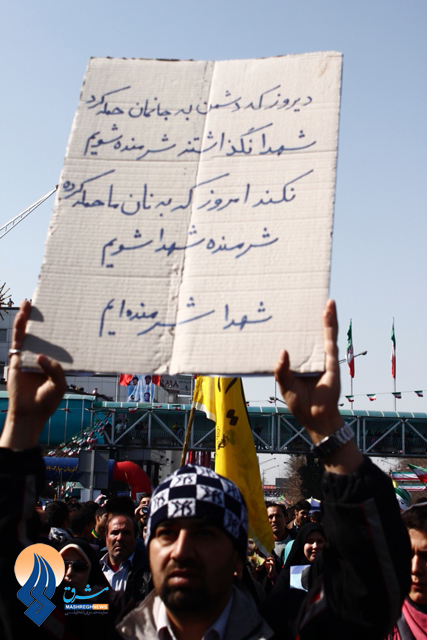 دیروز که دشمن به جانمان حمله کرد
شهدا نگذاشتند شرمنده شویم
نکند امروز که به نان ما حمله کرده
شرمنده شهدا شویم
شهدا شرمنده‌ایم
مشرق
MASHREGHNEWS